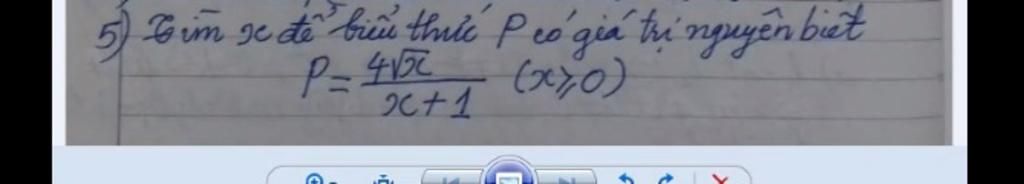 5) Tìm x để biểu thức P có giá trị nguyên biết
P = 4√x / x + 1 (x ⩾ 0)